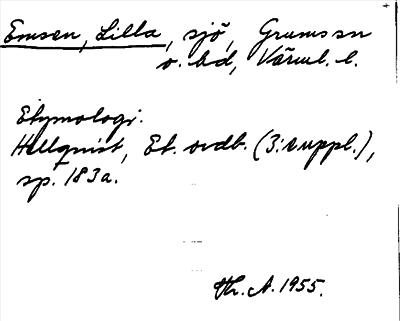 Emsen, Lilla, sjö, Grums sn
o. hd, Värml. l.
Etymologi:
Hellquist, Et. ordb. (3: suppl.),
sp. 183a.
Th. A. 1955.